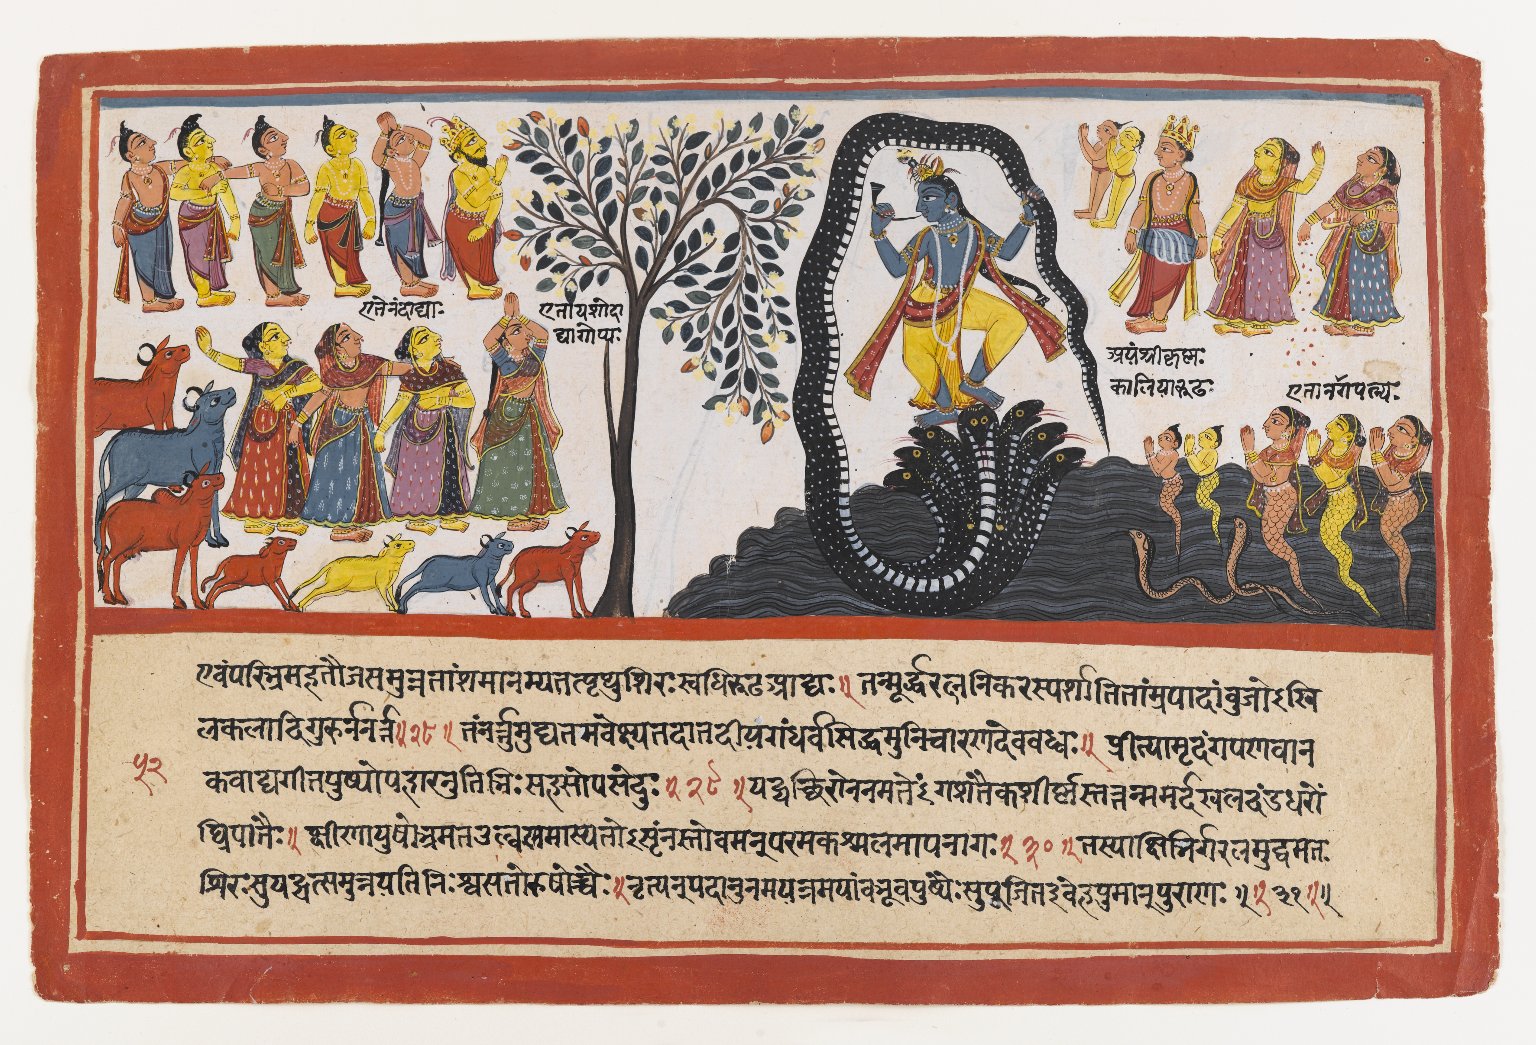 एतेनंदाद्याः
एतायशोदा
द्यागोप्यः
अयंश्रीकृष्णः
कालियारूढः
एतानागपत्न्यः
एवंपरिभ्रमहतौजसमुन्नतांसमानम्यतत्पृथुशिरःस्वधिरूढआद्यः॥ तन्मूर्द्धरत्ननिकरस्पर्शातिताम्रपादांबुजोऽखि
लकलादिगुरुर्ननर्त्त॥२८॥ तंनर्त्तुमुद्यतमवेक्ष्यतदातदीयगंधर्वसिद्धमुनिचारणदेववध्वः॥ प्रीत्यामृदंगपणवान
५२
कवाद्यगीतपुष्पोपहारनुतिभिःसहसोपसेदुः॥२९॥यद्यच्छिरोननमतेऽंगशतैकशीर्ष्णस्तत्तन्ममर्दखलदंडधरों
घ्रिपातैः॥ क्षीणायुषोभ्रमतउल्बणमास्यतोऽसृंनस्तोवमन्परमकश्मलमापनागः॥३०॥तस्याक्षिभिर्गरलमुद्वमतः
शिरःसुयद्यत्समुन्नमतिनिःश्वसतोरुषोच्चैः॥नृत्यन्पदानुनमयन्दमयांबभूवपुष्पैःसुपूजितइवेहपुमान्पुराणः॥॥३१॥॥